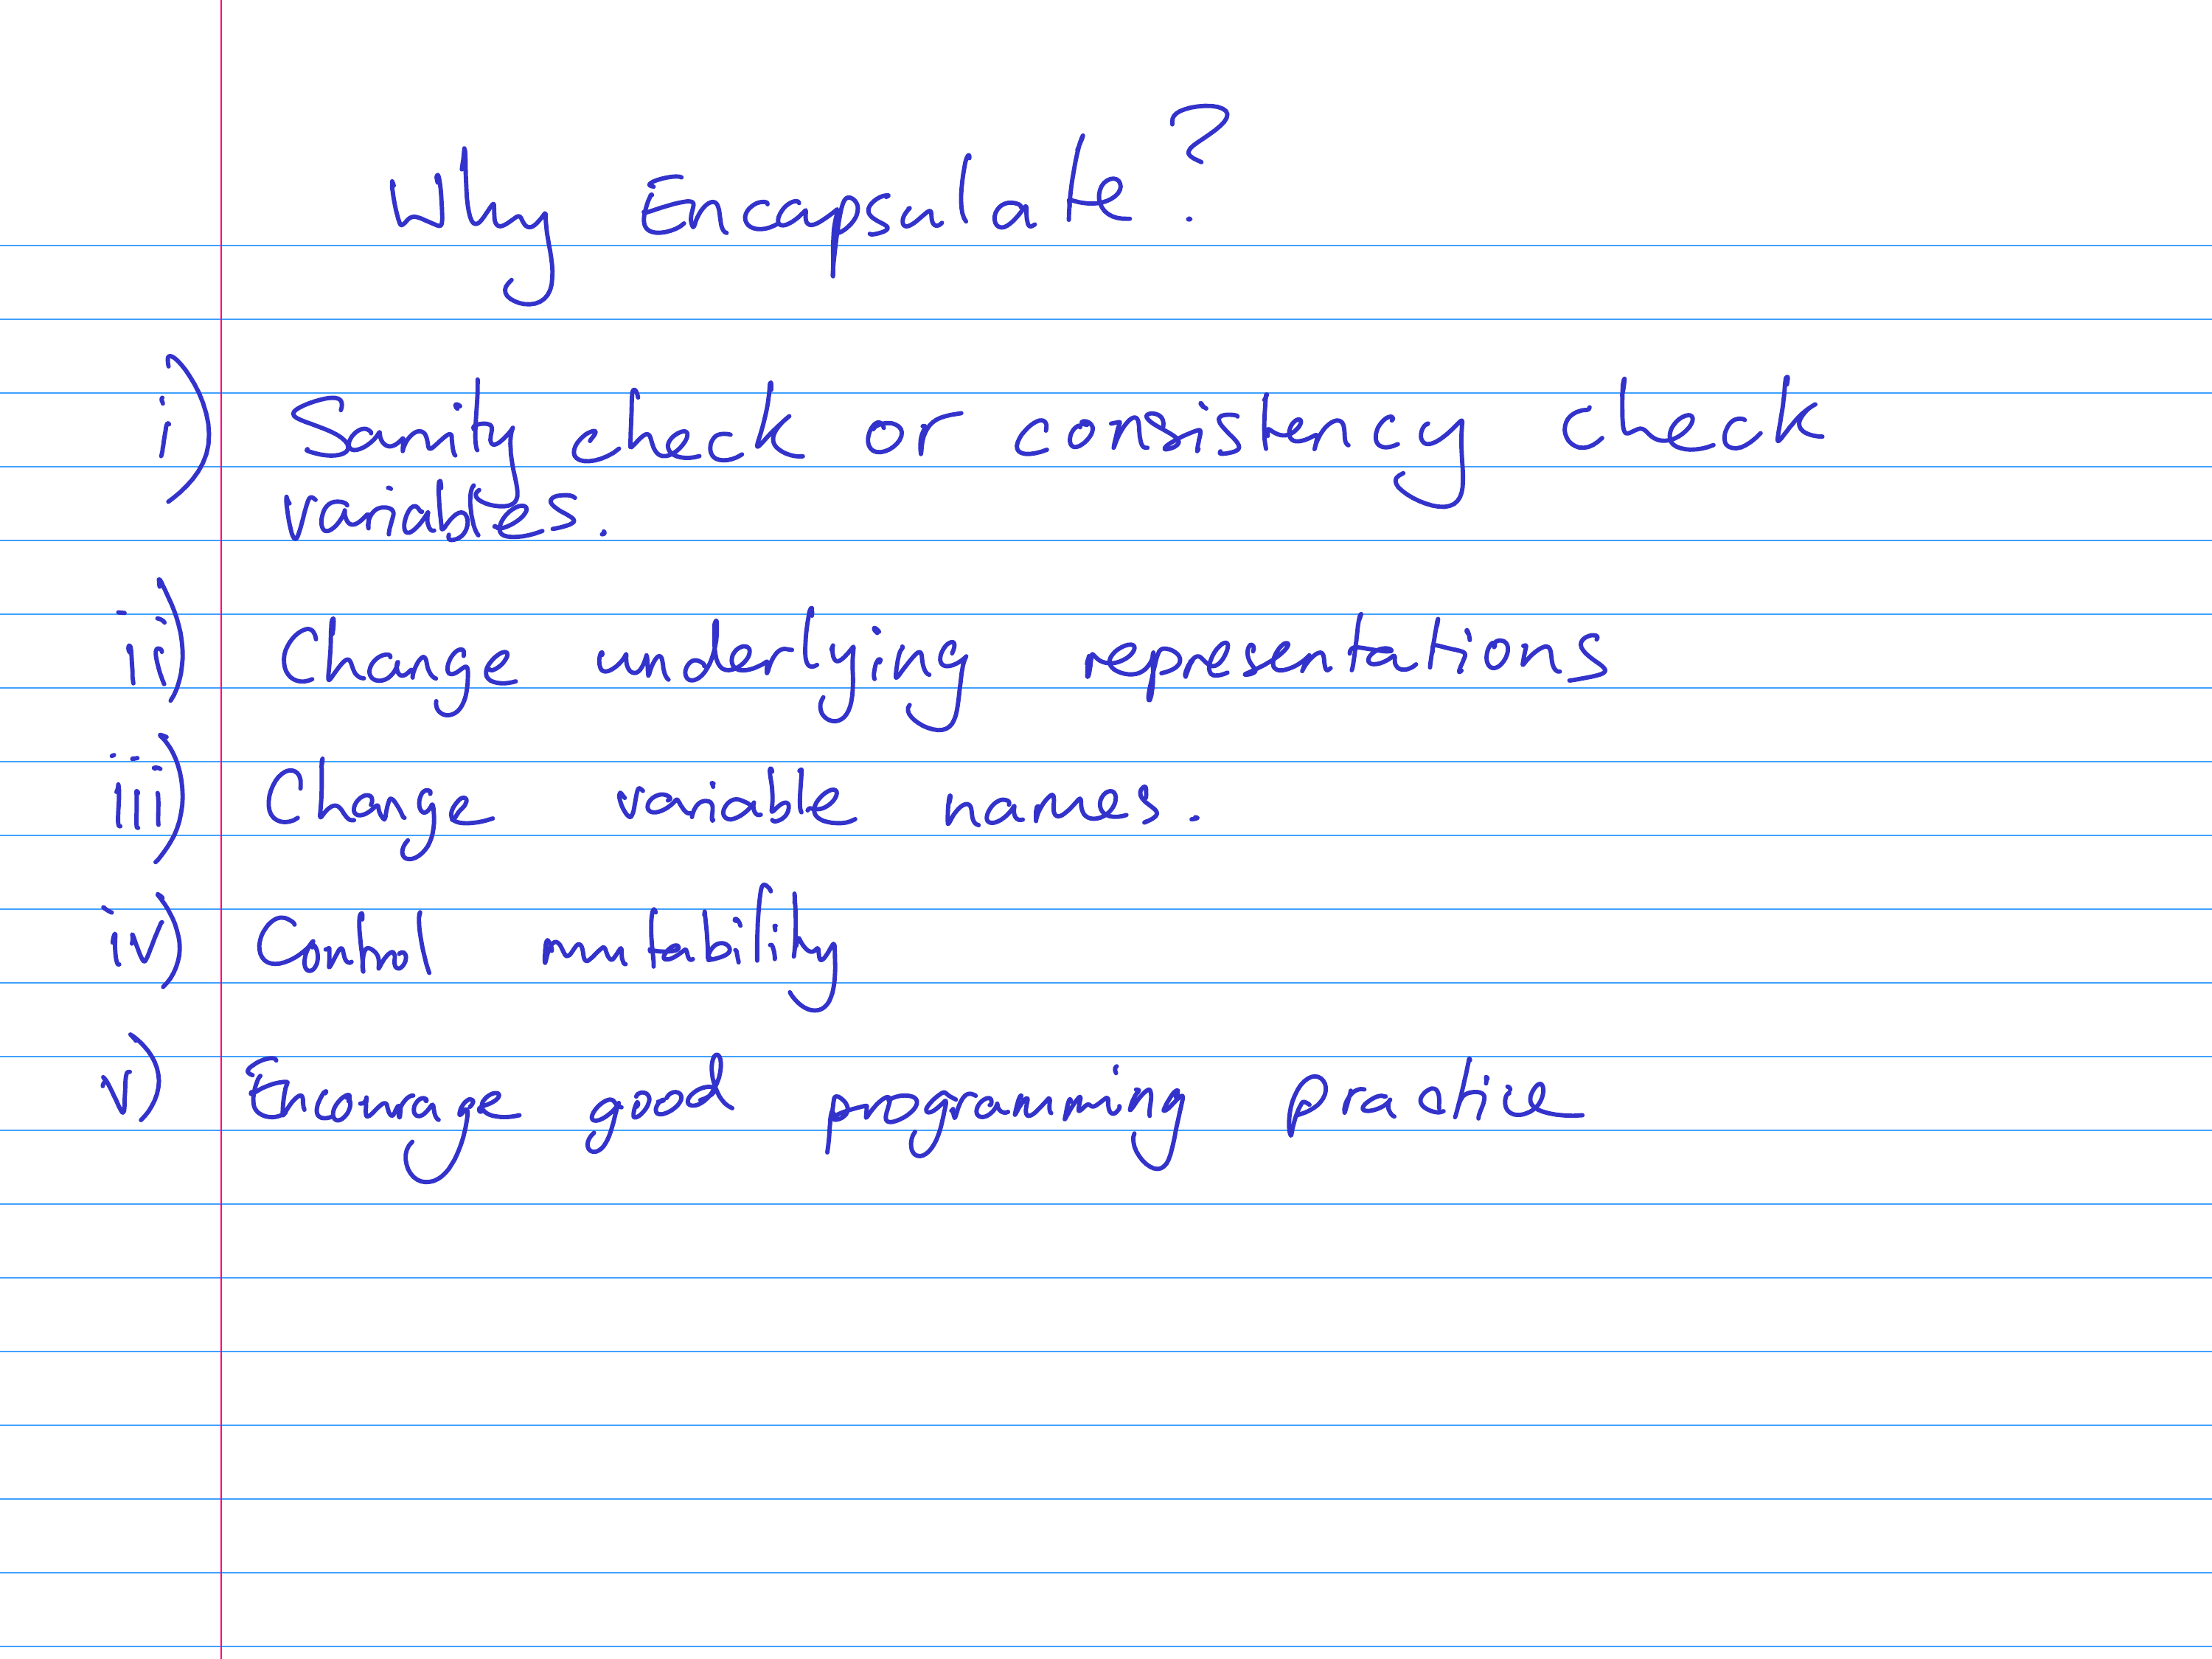 Why Encapsulate?
i) Sanity check or consistency check
variables.
ii) Change underlying representations
iii) Change variable names.
iv) Control mutability
v) Encourage good programming practice